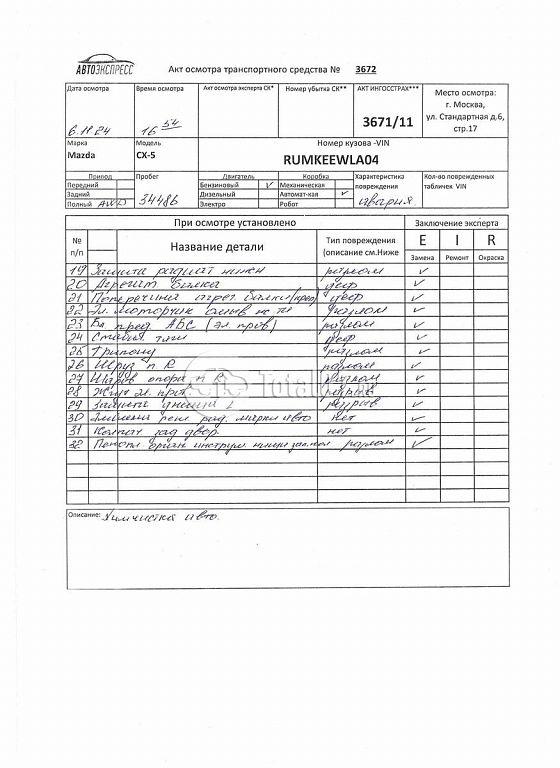 АВТОЭКСПРЕСС
Акт осмотра транспортного средства № 3672
Дата осмотра
Время осмотра
Акт осмотра эксперта СК*
Номер убытка СК**
АКТ ИНГОССТРАХ***
Место осмотра:
г. Москва,
ул. Стандартная д.6,
стр.17
6.11.24
16 54
3671/11
Марка
Модель
Номер кузова -VIN
Mazda
CX-5
RUMKEEWLA04
Привод
Пробег
Двигатель
Коробка
Характеристика повреждения
Кол-во поврежденных табличек VIN
Передний
Бензиновый ✓
Механическая
Задний
Дизельный
Автомат-кая ✓
Полный AWD
Электро
Робот
34486
авария
При осмотре установлено
Заключение эксперта
№ п/п
Название детали
Тип повреждения (описание см.Ниже
E I R
Замена Ремонт Окраска
19 Защита радиат нижн разлом ✓
20 Агрегат балка деф ✓
21 Поперечина агрег. балки деф ✓
22 Эл. моторчик омыв разлом ✓
23 Бл. пред АБС разлом ✓
24 Стабил. тяги деф ✓
25 разлом ✓
26 Шрус п R разлом ✓
27 Шаров опора п R разлом ✓
28 Жгут эл. пров ✓
29 Защита днища L разрыв ✓
30 Эмблема реш рад марки авто нет ✓
31 Колпач зад двор. нет ✓
32 разлом ✓
Total
Описание: Химчистка авто.